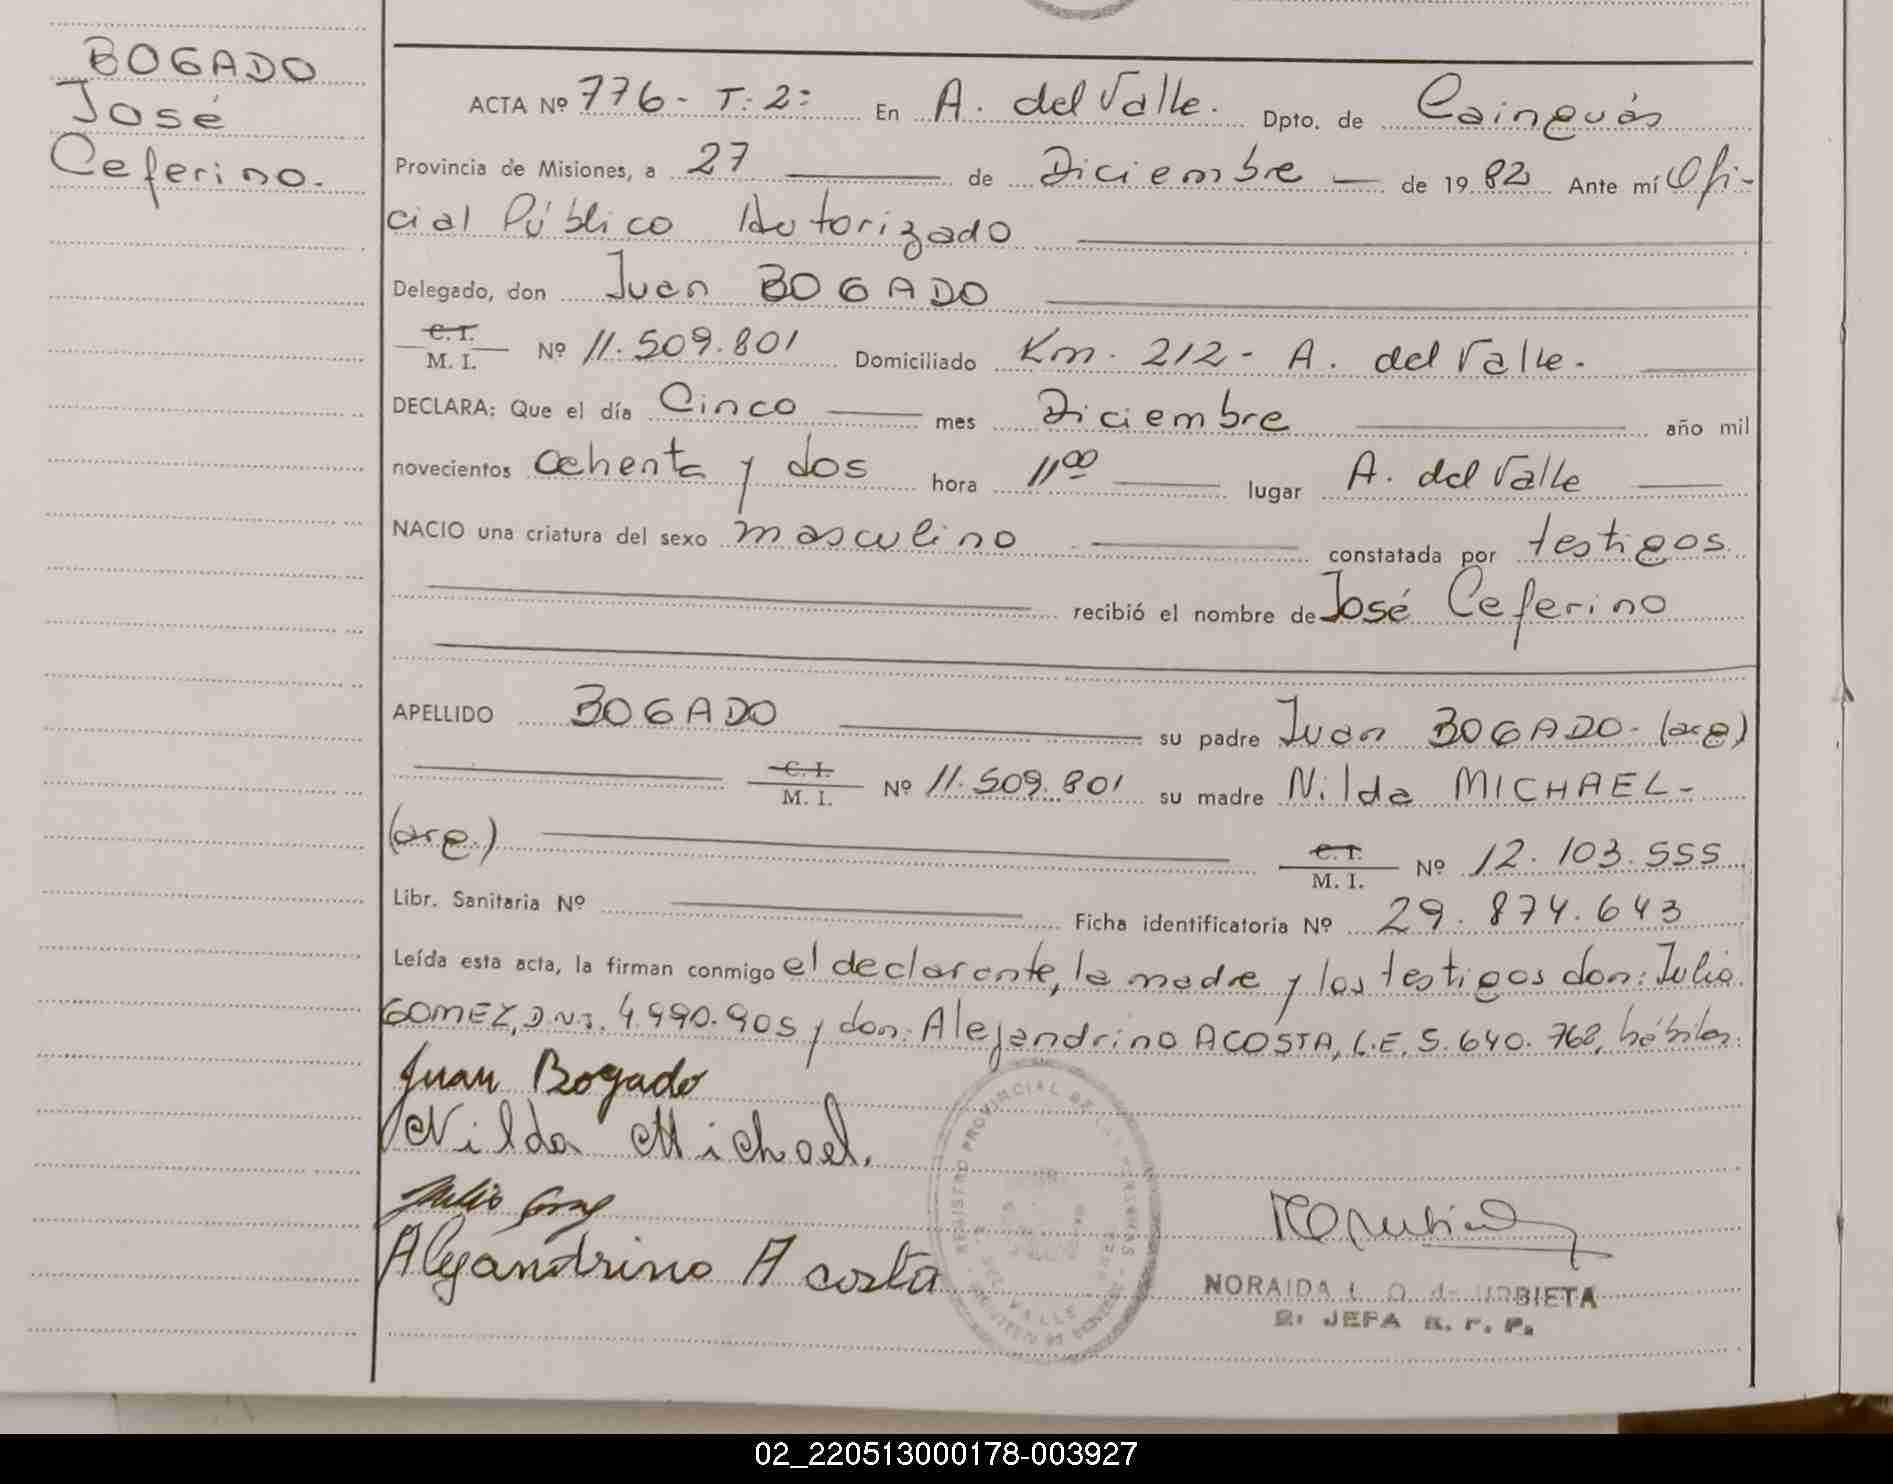 BOGADO
José
Ceferino.
ACTA Nº 776- T: 2: En A. del Valle. Dpto. de Cainguás
Provincia de Misiones, a 27 de Diciembre — de 19 82 Ante mí Ofi-
cial Público Autorizado
Delegado, don Juan BOGADO
C. I.
M. I. Nº 11.509.801 Domiciliado Km. 212- A. del Valle.
DECLARA: Que el día Cinco mes Diciembre año mil
novecientos ochenta y dos hora 11⁰⁰ lugar A. del Valle
NACIO una criatura del sexo masculino constatada por testigos
recibió el nombre de José Ceferino
APELLIDO BOGADO su padre Juan BOGADO- (arg)
C. I.
M. I. Nº 11.509.801 su madre Nilda MICHAEL-
(arg.) C. I.
M. I. Nº 12.103.555
Libr. Sanitaria Nº Ficha identificatoria Nº 29.874.643
Leída esta acta, la firman conmigo el declarante, la madre y los testigos don: Julio
GOMEZ, D.N.I. 4.990.905 y don: Alejandrino ACOSTA, L.E. 5.640.768, hábiles.
Juan Bogado
Nilda Michael.
Julio
Alejandrino Acosta
REGISTRO PROVINCIAL DE LAS PERSONAS
DEL VALLE
NORAIDA L. O. de URBIETA
2: JEFA R. P. P.
02_220513000178-003927